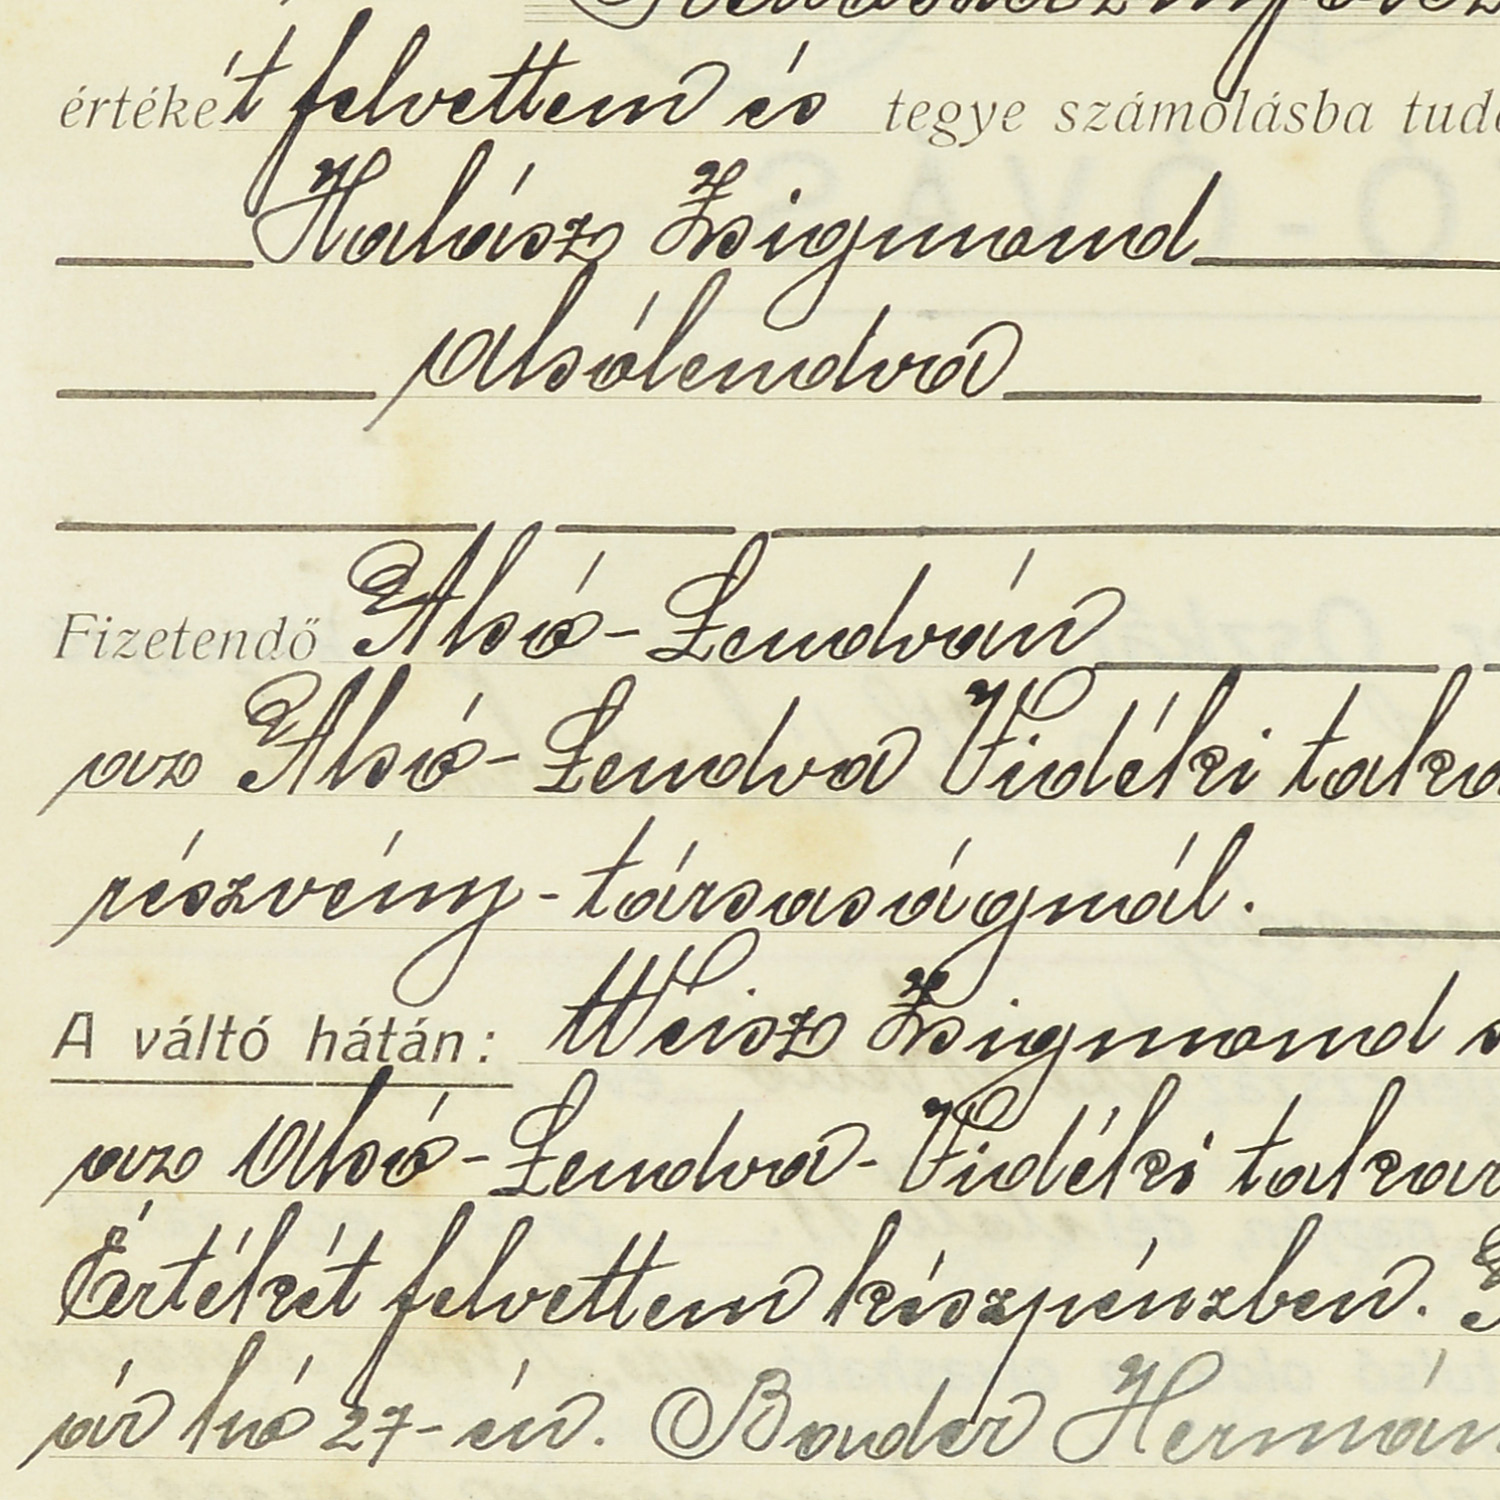 értékét felvettem és tegye számolásba tud
Halász Zsigmond
Alsólendva
Fizetendő Alsó-Lendván
az Alsó-Lendva Vidéki taka
részvény-társaságnál.
A váltó hátán: Weisz Zsigmond s
az Alsó-Lendva-Vidéki takar
Értékét felvettem készpénzben.
ár hó 27-én. Bauder Hermán